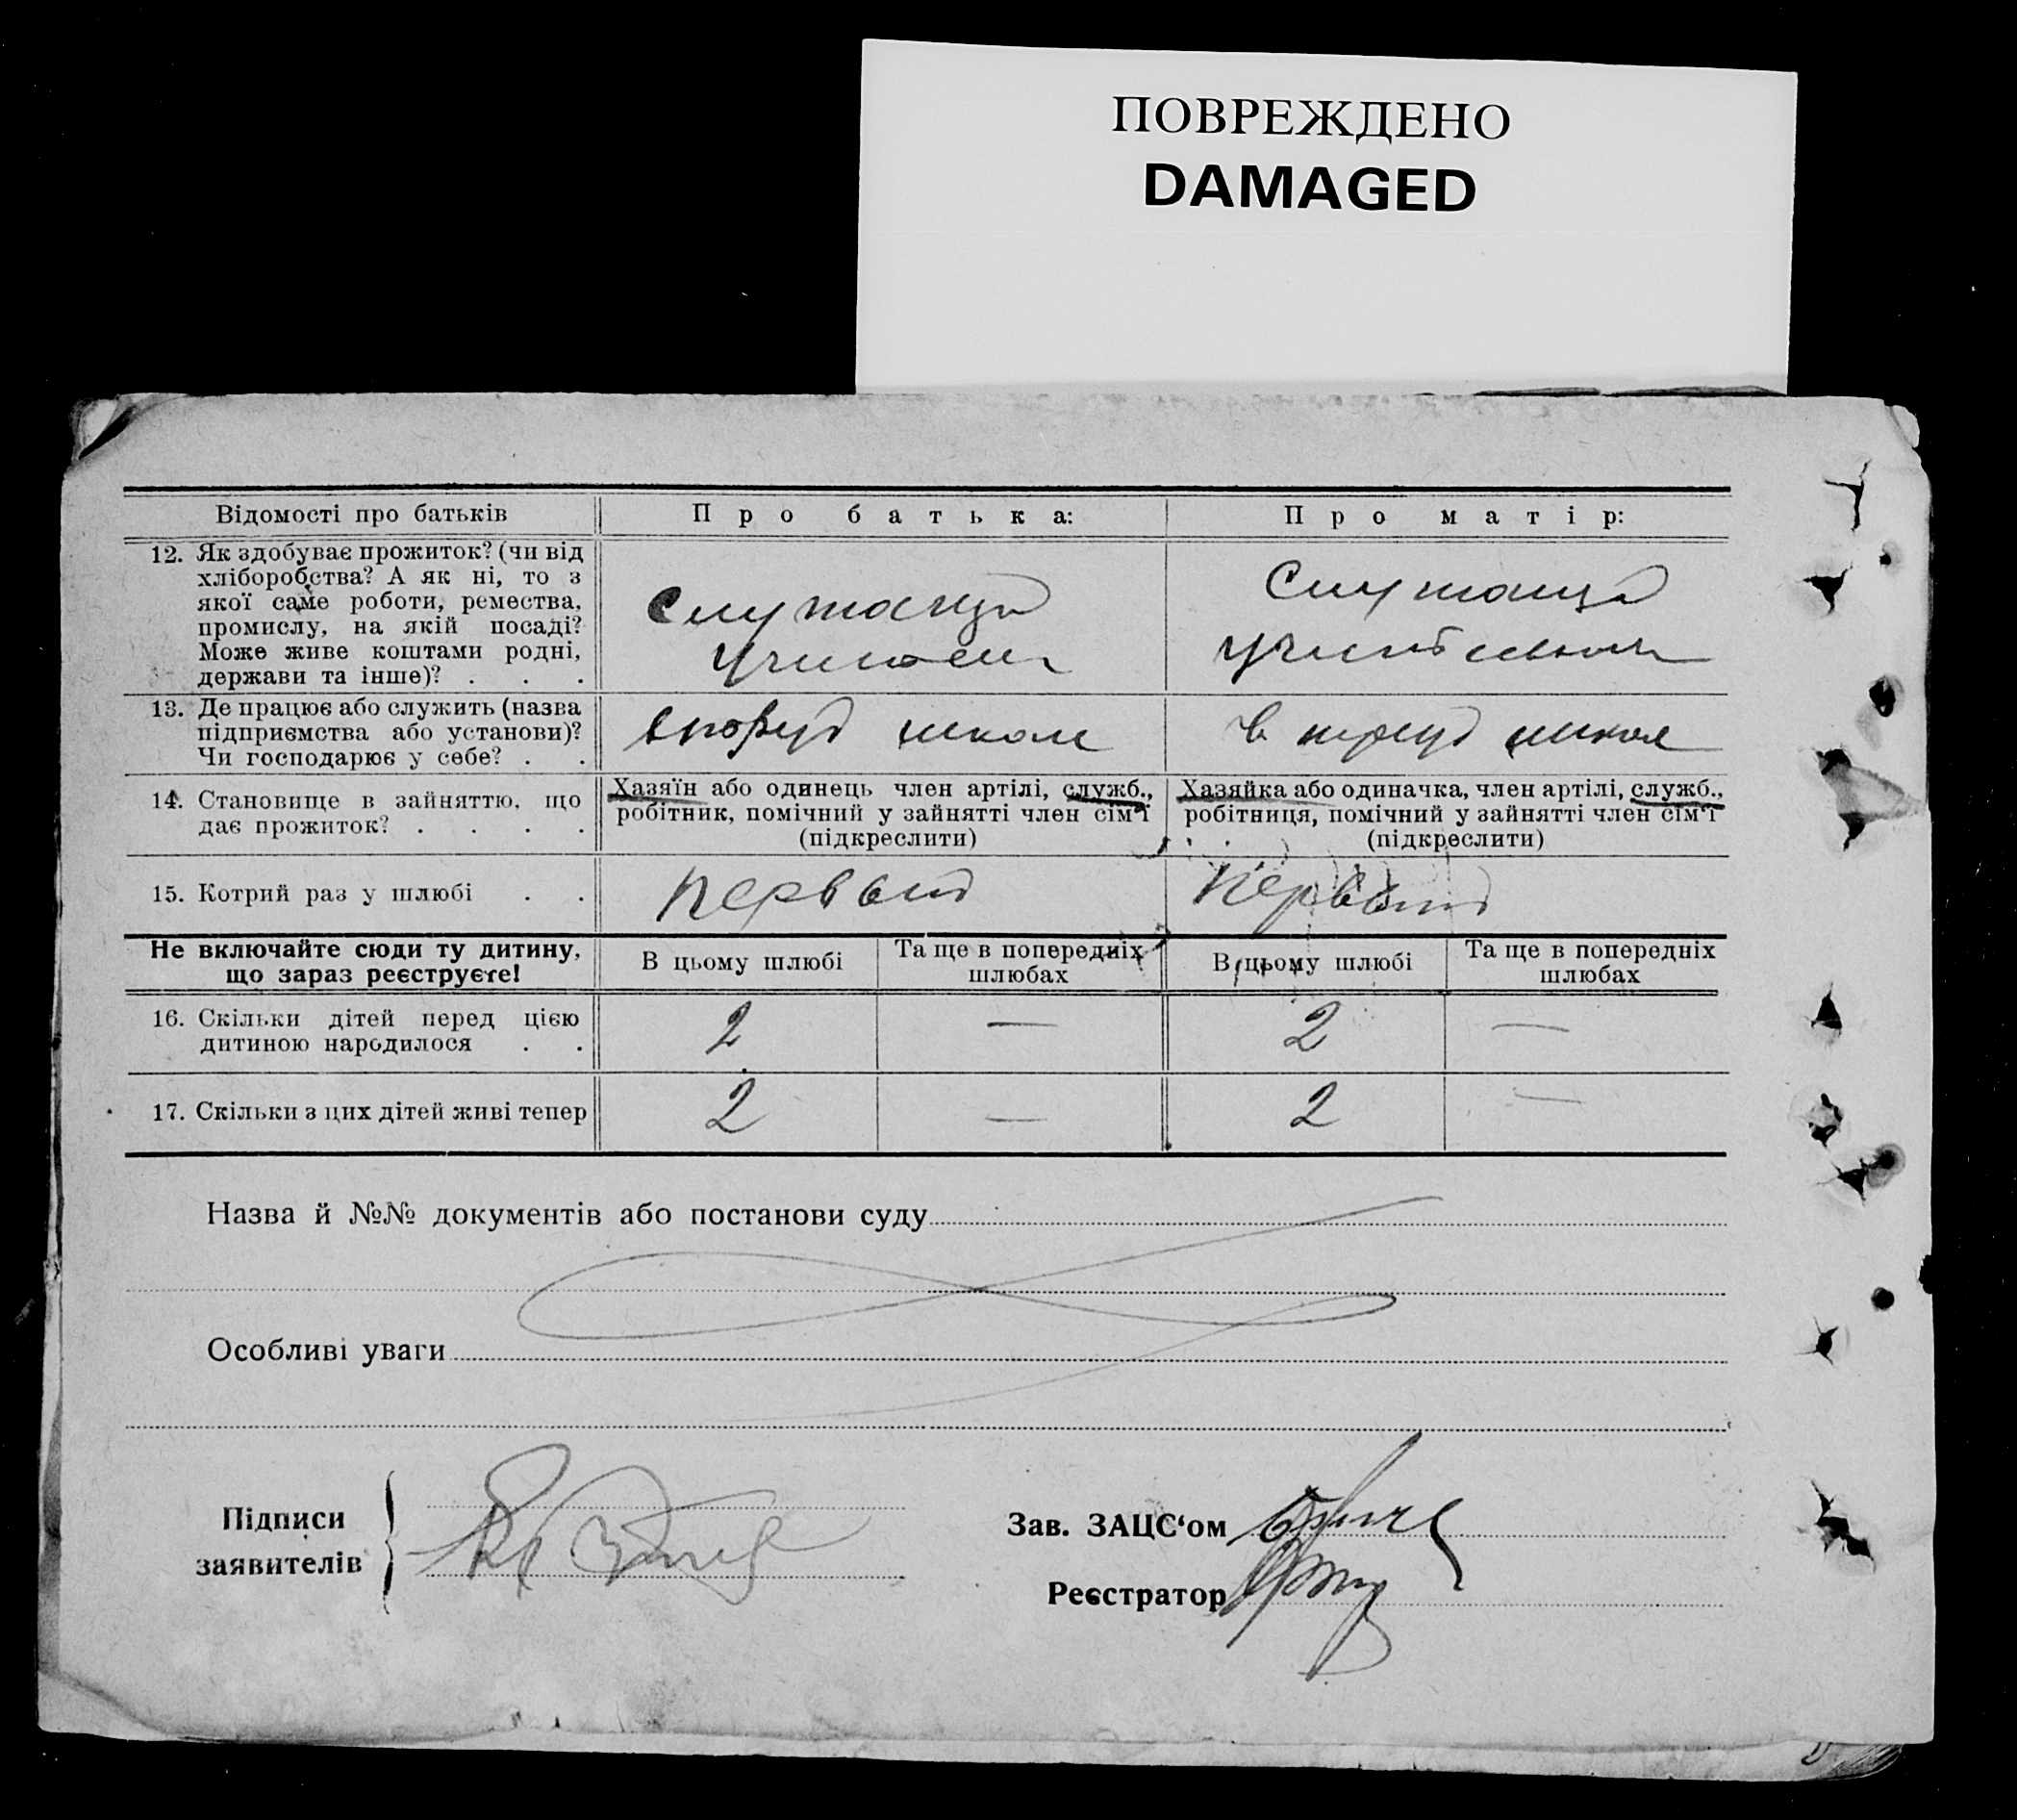 ПОВРЕЖДЕНО
DAMAGED
Відомості про батьків
Про батька:
Про матір:
12. Як здобуває прожиток? (чи від
хліборобства? А як ні, то з
якої саме роботи, ремества,
промислу, на якій посаді?
Може живе коштами родні,
держави та інше)? . . .
Служащий
Служащий
13. Де працює або служить (назва
підприємства або установи)?
Чи господарює у себе? . .
школе
в школе
14. Становище в зайняттю, що
дає прожиток? . . . .
Хазяїн або одинець член артілі, служб.,
робітник, помічний у зайнятті член сім'ї
(підкреслити)
Хазяйка або одиначка, член артілі, служб.,
робітниця, помічний у зайнятті член сім'ї
(підкреслити)
15. Котрий раз у шлюбі . .
Первый
Первый
Не включайте сюди ту дитину,
що зараз реєструєте!
В цьому шлюбі
Та ще в попередніх
шлюбах
В цьому шлюбі
Та ще в попередніх
шлюбах
16. Скільки дітей перед цією
дитиною народилося . .
2
—
2
—
17. Скільки з цих дітей живі тепер
2
—
2
—
Назва й №№ документів або постанови суду
Особливі уваги
Підписи
заявителів
Зав. ЗАЦС‘ом
Реєстратор